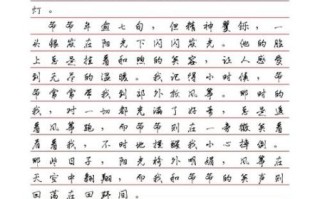 灯。
爷爷年逾七旬，但精神矍铄，一
头银发在阳光下闪闪发光。他的脸
上总是挂着和煦的笑容，让人感受
到无尽的温暖。我记得小时候，爷
爷常常带我到郊外放风筝。那时的
我，对一切都充满了好奇，总是追
着风筝跑，而爷爷则在一旁微笑着
看着我，不时地提醒我小心摔倒。
那些日子，阳光格外明媚，风筝在
天空中翱翔，而我和爷爷的笑声则
回荡在田野间。